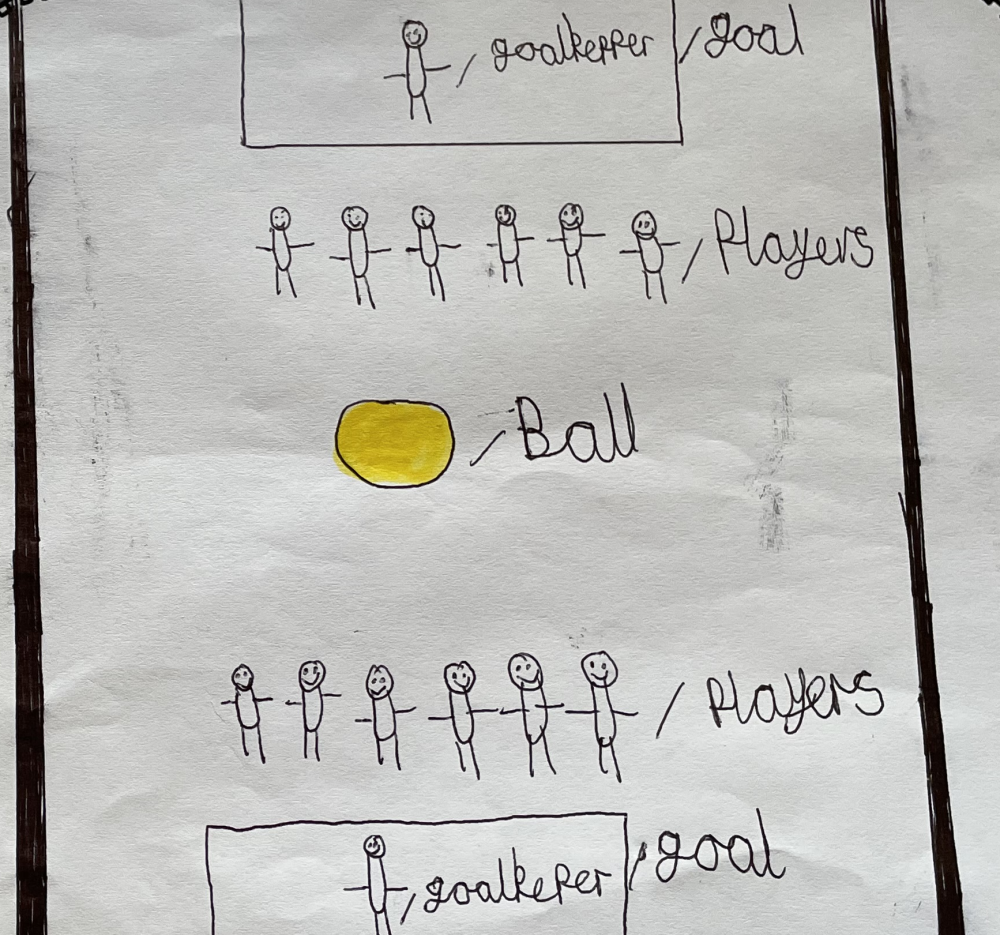 goalkepper
goal
Players
Ball
Players
goalkeper
goal